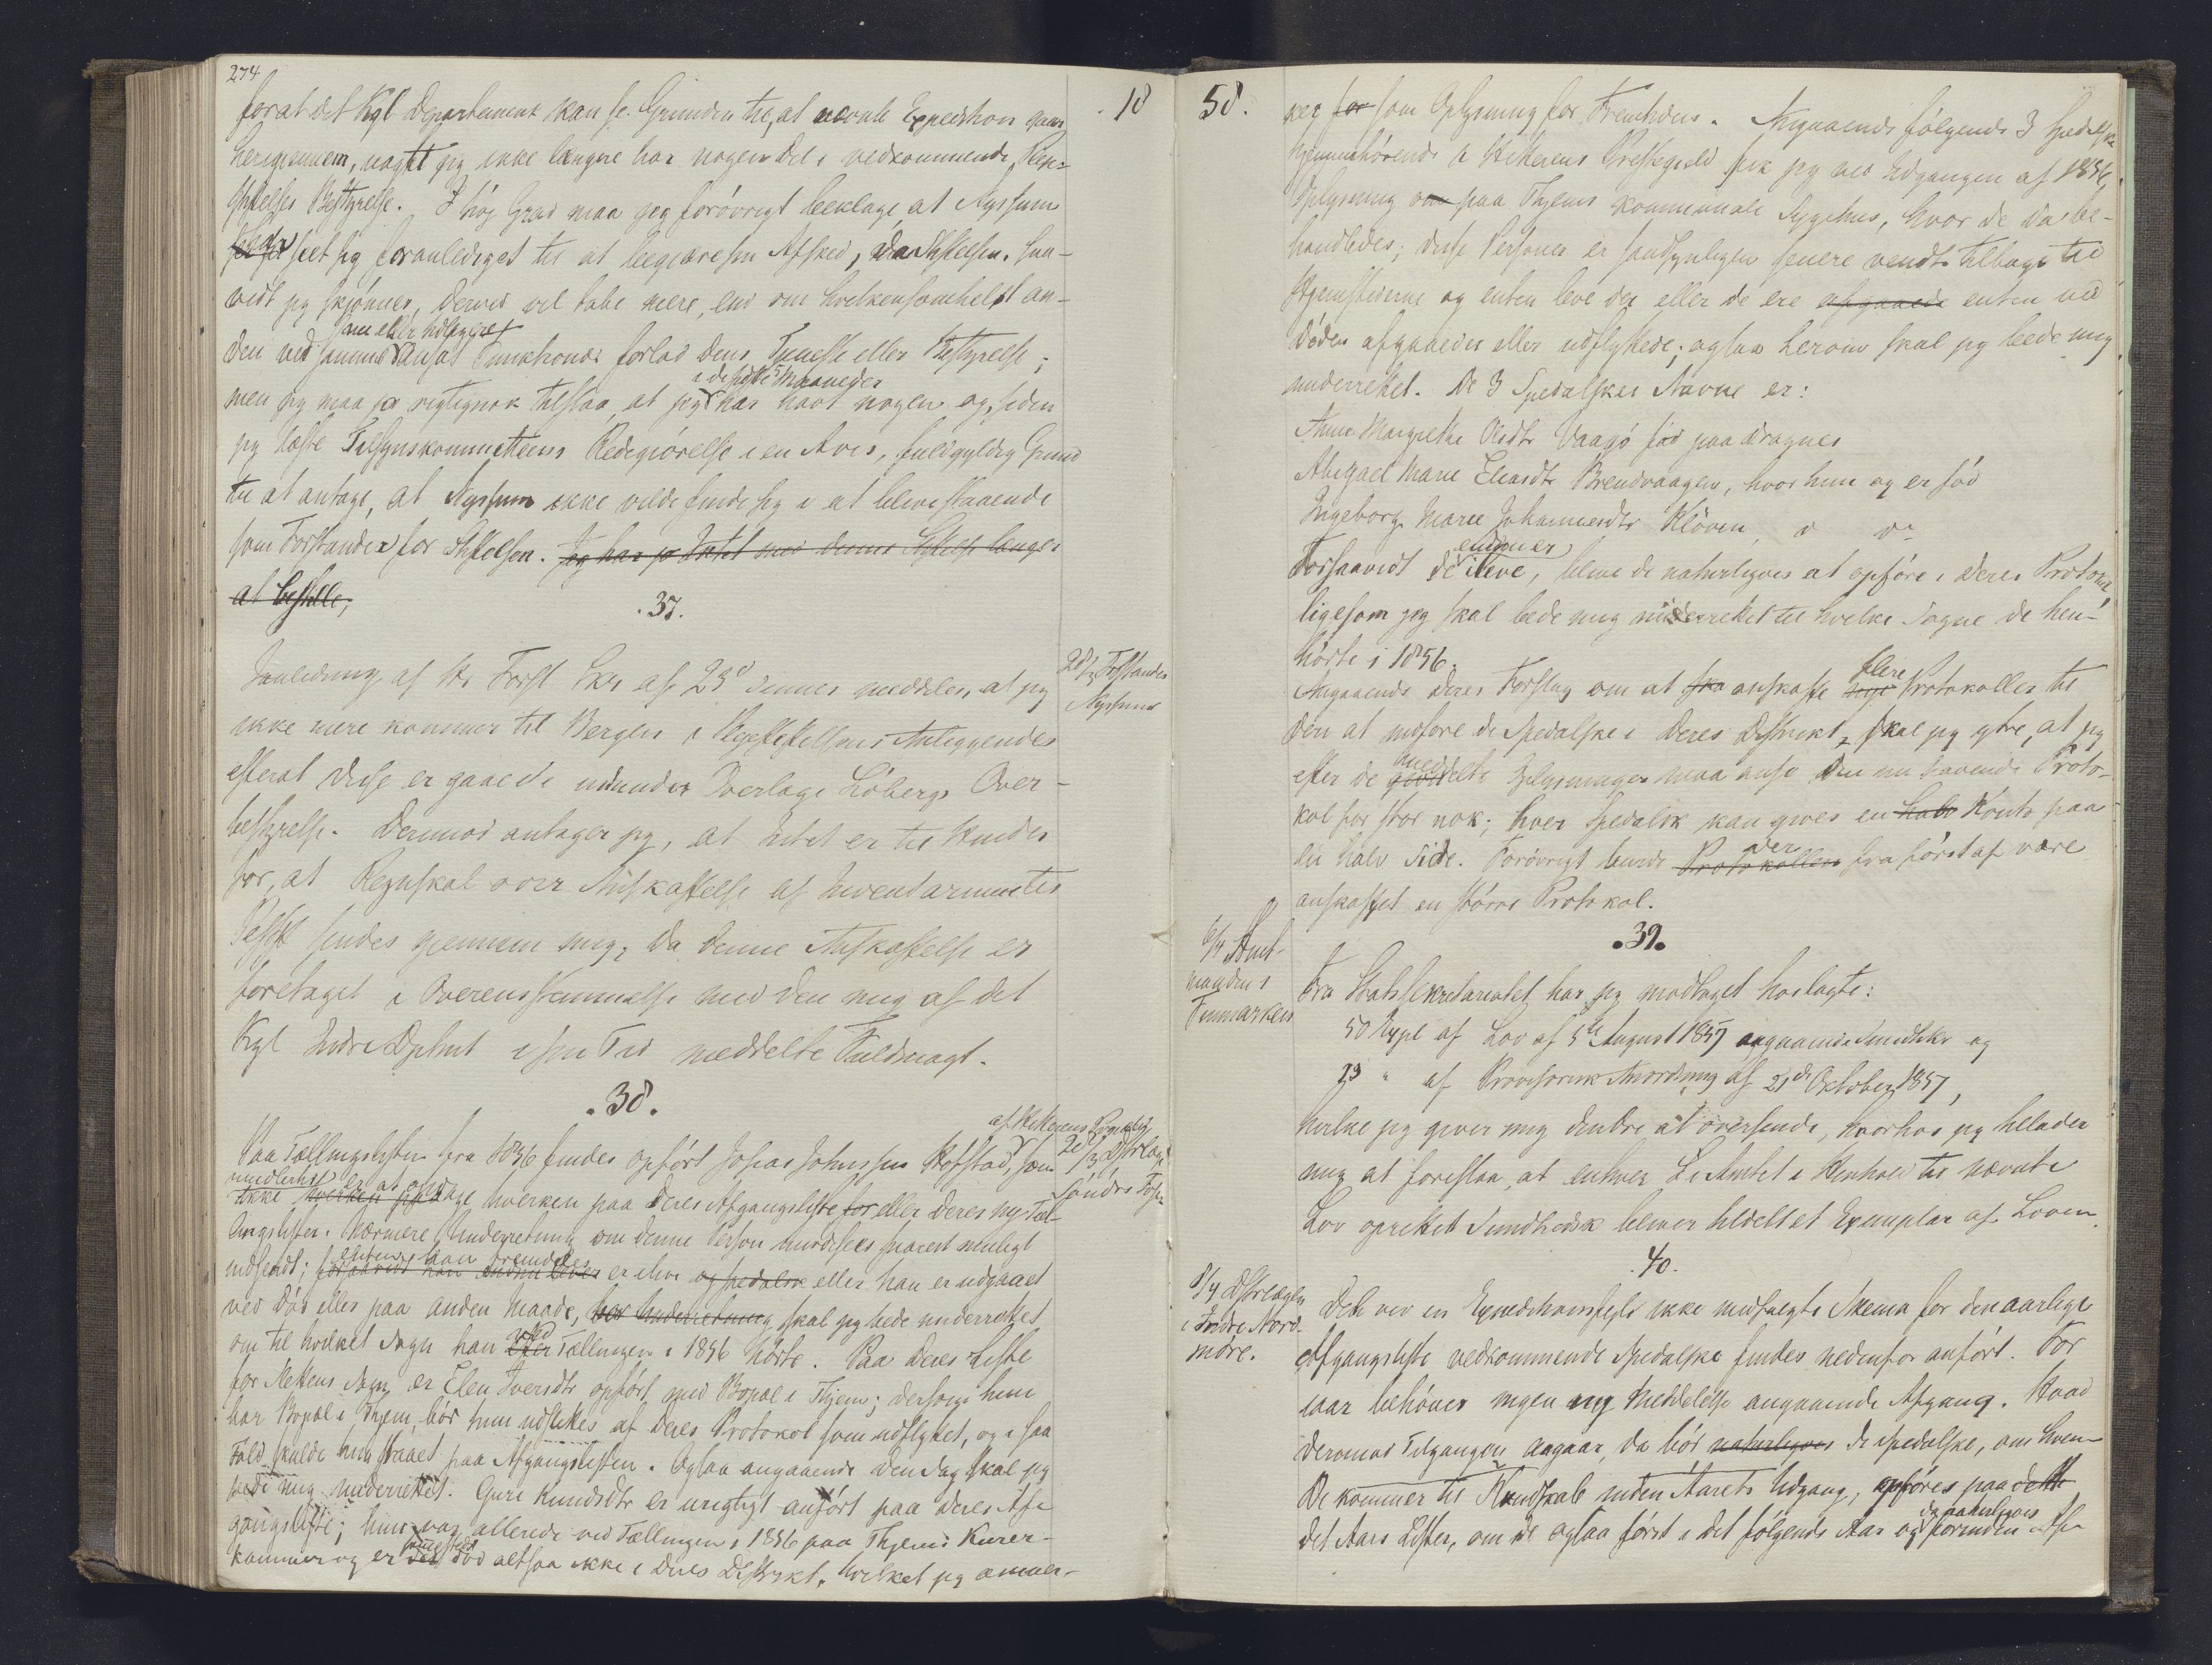 274
18
forat det Kgl Departement kan se Grunden til, at nævnte Expedition gaar
herigjennem, uagtet jeg ikke længere har nogen Del i vedkommende Pleie-
stiftelses Bestyrelse. I høj Grad maa jeg forøvrigt beklage, at Nyssum
har seet sig foranlediget til at begjære sin Afsked, da Stiftelsen, saa-
vidt jeg skjønner, derved vil tabe mere, end om hvilkensomhelst an-
den ved samme ansat Funktionær forlod dens Tjeneste eller Bestyrelse;
men jeg maa jo rigtignok tilstaa, at jeg i de sidste 5 Maaneder har havt nogen og, siden
jeg læste Tilsynskommitteens Redegjørelse i en Avis, fuldgyldig Grund
til at antage, at Nyssum ikke vilde finde sig i at blive staaende
som Forstander for Stiftelsen. Jeg har jo Intet med denne Stiftelse længer
at bestille,
.37.
28/3 Forstander
Nyssum
I Anledning af Hr Forst Skr af 23d dennes meddeles, at jeg
ikke mere kommer til Bergen i Plejestiftelsens Anliggender
efterat disse er gaaede ind under Overlæge Løbergs Over-
bestyrelse. Derimod antager jeg, at intet er til Hinder
for, at Regnskab over Anskaffelse af Inventarium til
Pleiest sendes gjennem mig, da denne Anskaffelse er
foretaget i Overensstemmelse med den mig af det
Kgl Indre Dptmt i sin Tid meddelte Fuldmagt.
.38.
af Hitterens Prgjeld
Paa Tællingslisten fra 1856 findes opført Johan Johnsen Hofstad, som
imidlertid ikke er at opdage hverken paa Deres Afgangsliste for eller Deres ny Tæl-
lingslister. Nærmere Underretning om denne Person burde sees snarest muligt
indsendt; enten han fremdeles er ilive og spedalsk eller han er udgaaet
ved Død eller paa anden Maade, skal jeg bede underrettet
om til hvilket Sogn han ved Tællingen i 1856 hørte. Paa Deres Liste
for Sogn er Elen Iversdtr opført med Bopæl i Thjem; dersom hun
har Bopæl i Thjem, bør hun udslettes af Deres Protokol som udflyttet, og i saa
Fald skulde hun staaet paa Afgangslisten. Ogsaa angaaende den Sag skal jeg
bede mig underrettet. Guri Knudsdtr er urigtigt anført paa Deres Af-
gangsliste; hun var allerede ved Tællingen i 1856 paa Thjems Kurer-
kammer og er død altsaa ikke i Deres Distrikt, hvilket jeg anmær-
58.
ker for som Oplysning for Fremtiden. Angaaende følgende 3 Spedalske
hjemmehørende i Hitterens Præstegjeld fik jeg ved Udgangen af 1856
Oplysning om paa Thjems kommunale Sygehus, hvor de da be-
handledes; disse Personer er sandsynligvis senere vendt tilbage til
Hjemstederne og enten leve der eller de ere afgaaede enten ved
Døden afgaaede eller udflyttede; ogsaa herom skal jeg bede mig
underrettet. De 3 Spedalskes Navne er:
Anne Margrethe Olsdtr Vaagø fød paa Dragnes
Abigael Marie Eliasdtr Brendvaagen, hvor hun og er fød
Ingeborg Marie Johannesdtr Kløven, do do
Forsaavidt de endnu er ilive, blive de naturligvis at opføre i Deres Protokol
ligesom jeg skal bede mig underrettet til hvilke Sogne de hen-
hørte i 1856.
Angaaende Deres Forslag om at ska anskaffe flere Protokoller til
den at indføre de Spedalske i Deres Distrikt, skal jeg ytre, at jeg
efter de meddelte Oplysninger maa anse den nu havende Proto-
kol for stor nok; hver Spedalsk kan gives en halv Konto paa
en halv Side. Forøvrigt burde der Protokollen fra først af være
anskaffet en større Protokol.
.39.
6/4 Amt-
manden i
Finmarken
Fra Statssekretariatet har jeg modtaget hoslagte:
50 Expl af Lov af 5te August 1857 angaaende Sundhkr og
23 " af Provisorisk Anordning af 21de October 1857,
hvilke jeg giver mig den Ære at oversende, hvorhos jeg tillader
mig at foreslaa, at enhver i Amtet i Henhold til nævnte
Lov oprettet Sundhedsk bliver tildelt et Exemplar af Loven
.40.
8/4 Dstrlægen
i Indre Nord-
møre.
Dette ved en Expeditionsfejl ikke medfulgte Skema for den aarlige
Afgangsliste vedkommende Spedalske findes nedenfor anført. For
iaar behøves ingen ny Meddelelse angaaende Afgang. Hvad
derimod Tilgangen angaar, da bør naturligvis de Spedalske, om hven
De kommer til Kundskab inden Aarets Udgang, opføres paa dette
det Aars Lister, om de ogsaa først i det følgende Aar og da naturligvis forinden Af-